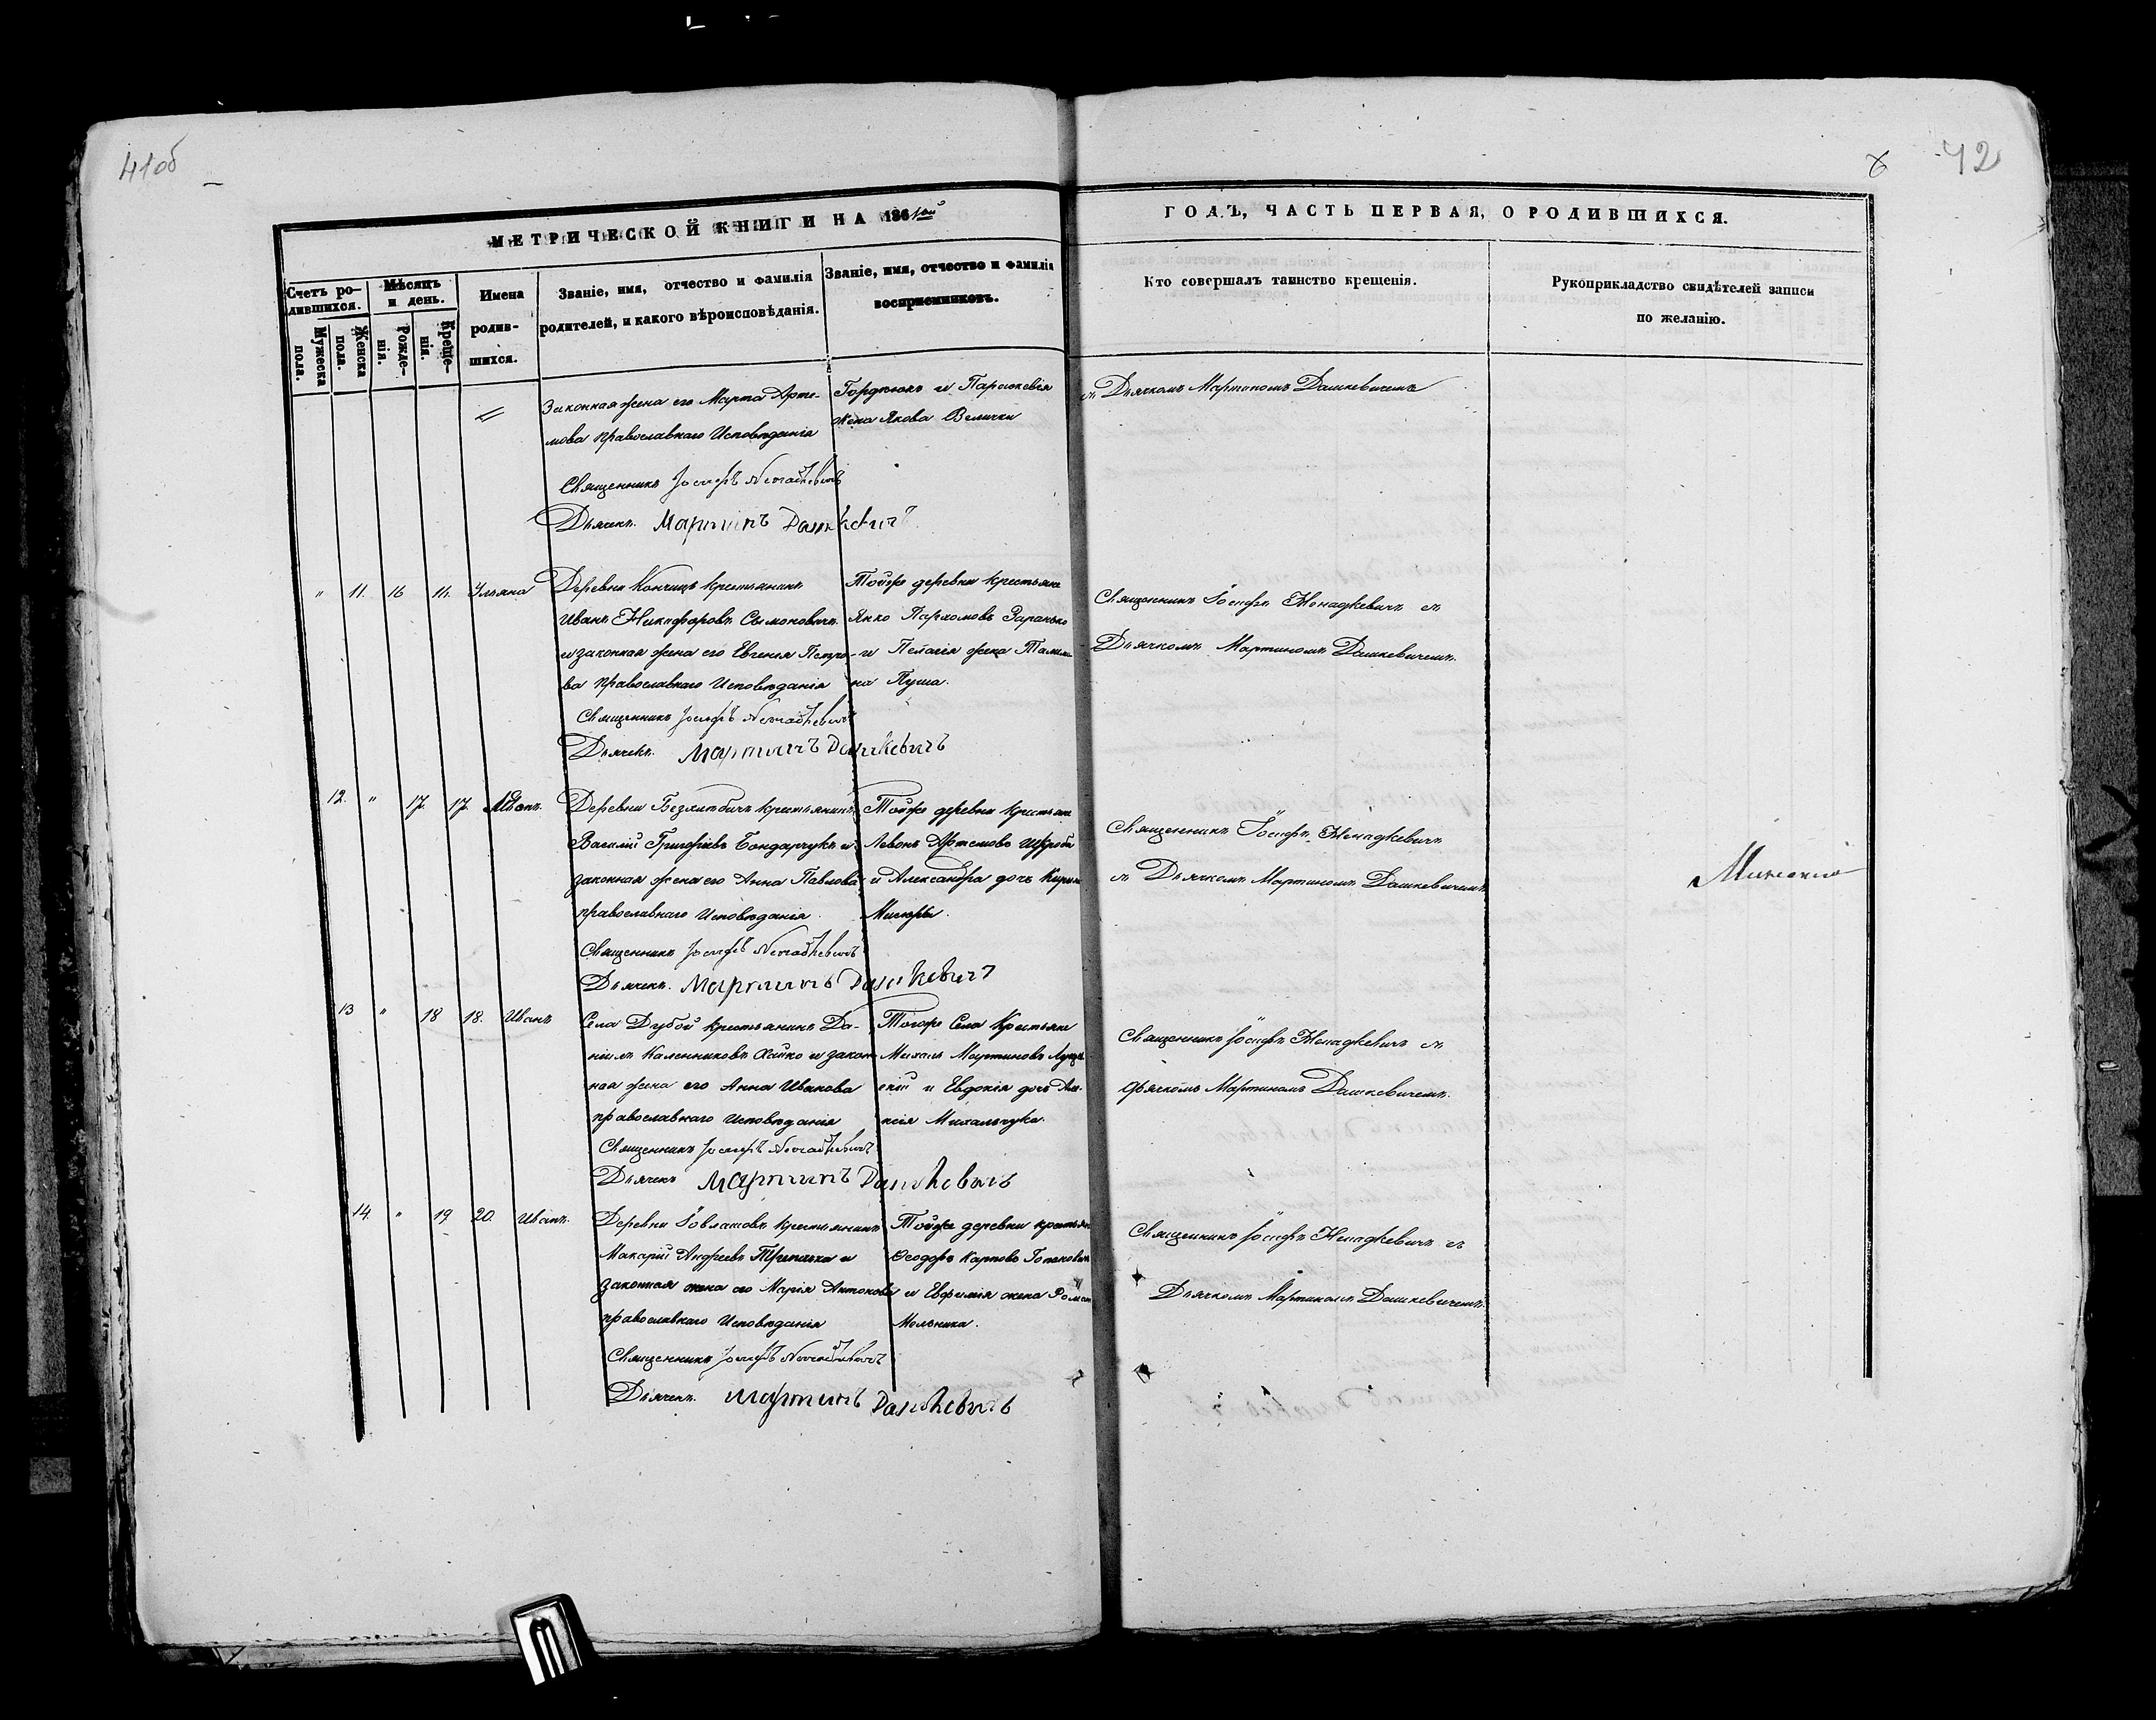 41об
42
МЕТРИЧЕСКОЙ КНИГИ НА 1861ой
ГОДЪ, ЧАСТЬ ПЕРВАЯ, О РОДИВШИХСЯ.
Счетъ родившихся.
Мужеска пола.
Женска пола.
Мѣсяцъ и день.
Рожденія.
Крещенія.
Имена родившихся.
Званіе, имя, отчество и фамилія
родителей, и какого вѣроисповѣданія.
Званіе, имя, отчество и фамилія
воспріемниковъ.
Кто совершалъ таинство крещенія.
Рукоприкладство свидѣтелей записи
по желанію.
Законная жена его Марта Арте-
мова православнаго Исповѣданія
Гордѣюкъ и Параскевія
жена Якова Велички
съ Дьячкомъ Мартиномъ Дашкевичемъ
Священникъ Іосифъ Ненадкевичъ
Дьячекъ Мартинъ Дашкевичъ
" 11. 16 16. Ульяна
Деревни Кончицъ крестьянинъ
Иванъ Никифоровъ Сымоновичъ
и законная жена его Евгенія Петро-
ва православнаго Исповѣданія
Тойже деревни крестьяне
Янко Пархомовъ Заранько
и Пелагія жена
на Пуша.
Священникъ Іосифъ Ненадкевичъ съ
Дьячкомъ Мартиномъ Дашкевичемъ.
Священникъ Іосифъ Ненадкевичъ
Дьячекъ. Мартинъ Дашкевичъ
12. " 17. 17.
Деревни крестьянинъ
Василій Григорьевъ Бондарчукъ и
законная жена его Анна Павлова
православнаго Исповѣданія
Тойже деревни крестьяне
Левонъ Артемовъ
и Александра дочь
Священникъ Іосифъ Ненадкевичъ
съ Дьячкомъ Мартиномъ Дашкевичемъ
Священникъ Іосифъ Ненадкевичъ
Дьячекъ. Мартинъ Дашкевичъ
13 " 18 18. Иванъ
Села Дубой крестьянинъ Да-
ніилъ Калениковъ Хайко и закон-
ная жена его Анна Иванова
православнаго Исповѣданія
Тогоже Села Крестьяне
Михалъ Мартиновъ
и Евдокія дочь Але-
ксія Михальчука.
Священникъ Іосифъ Ненадкевичъ съ
дьячкомъ Мартиномъ Дашкевичемъ.
Священникъ Іосифъ Ненадкевичъ
Дьячекъ Мартинъ Дашкевичъ
14. " 19 20. Иванъ.
Деревни крестьянинъ
Макарій Андреевъ и
законная жена его Марія Антонова
православнаго Исповѣданія
Тойже деревни крестьяне
Ѳеодоръ Карповъ
и Евфимія жена
Мельника.
Священникъ Іосифъ Ненадкевичъ съ
Дьячкомъ Мартиномъ Дашкевичемъ.
Священникъ Іосифъ Ненадкевичъ
Дьячекъ. Мартинъ Дашкевичъ